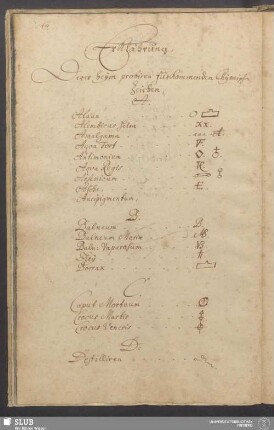 Erklährung.
Derer beym probiren fürkommenden Chymischen
Zeichen.
A.
Alaun
Amalgama
Aqua Fort
Antimonium
Aqua Regis
Arsenicum
Auripigmentum
B.
Balneum
Balneum Maria
Baln: Vaporosum
Borrax
C.
Caput Mortuum
Crocus Martis
Crocus Veneris
D.
Destilliren
SLUB
Wir führen Wissen.